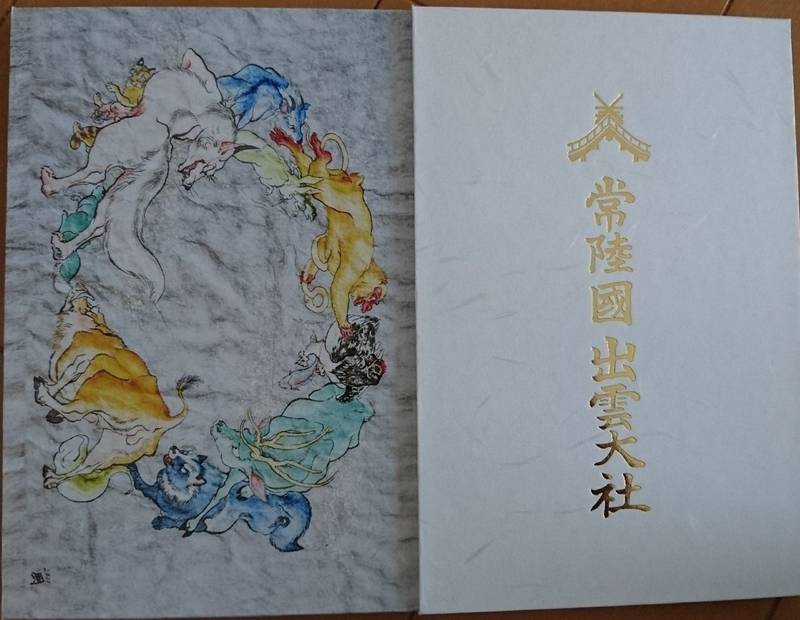 常陸國 出雲大社